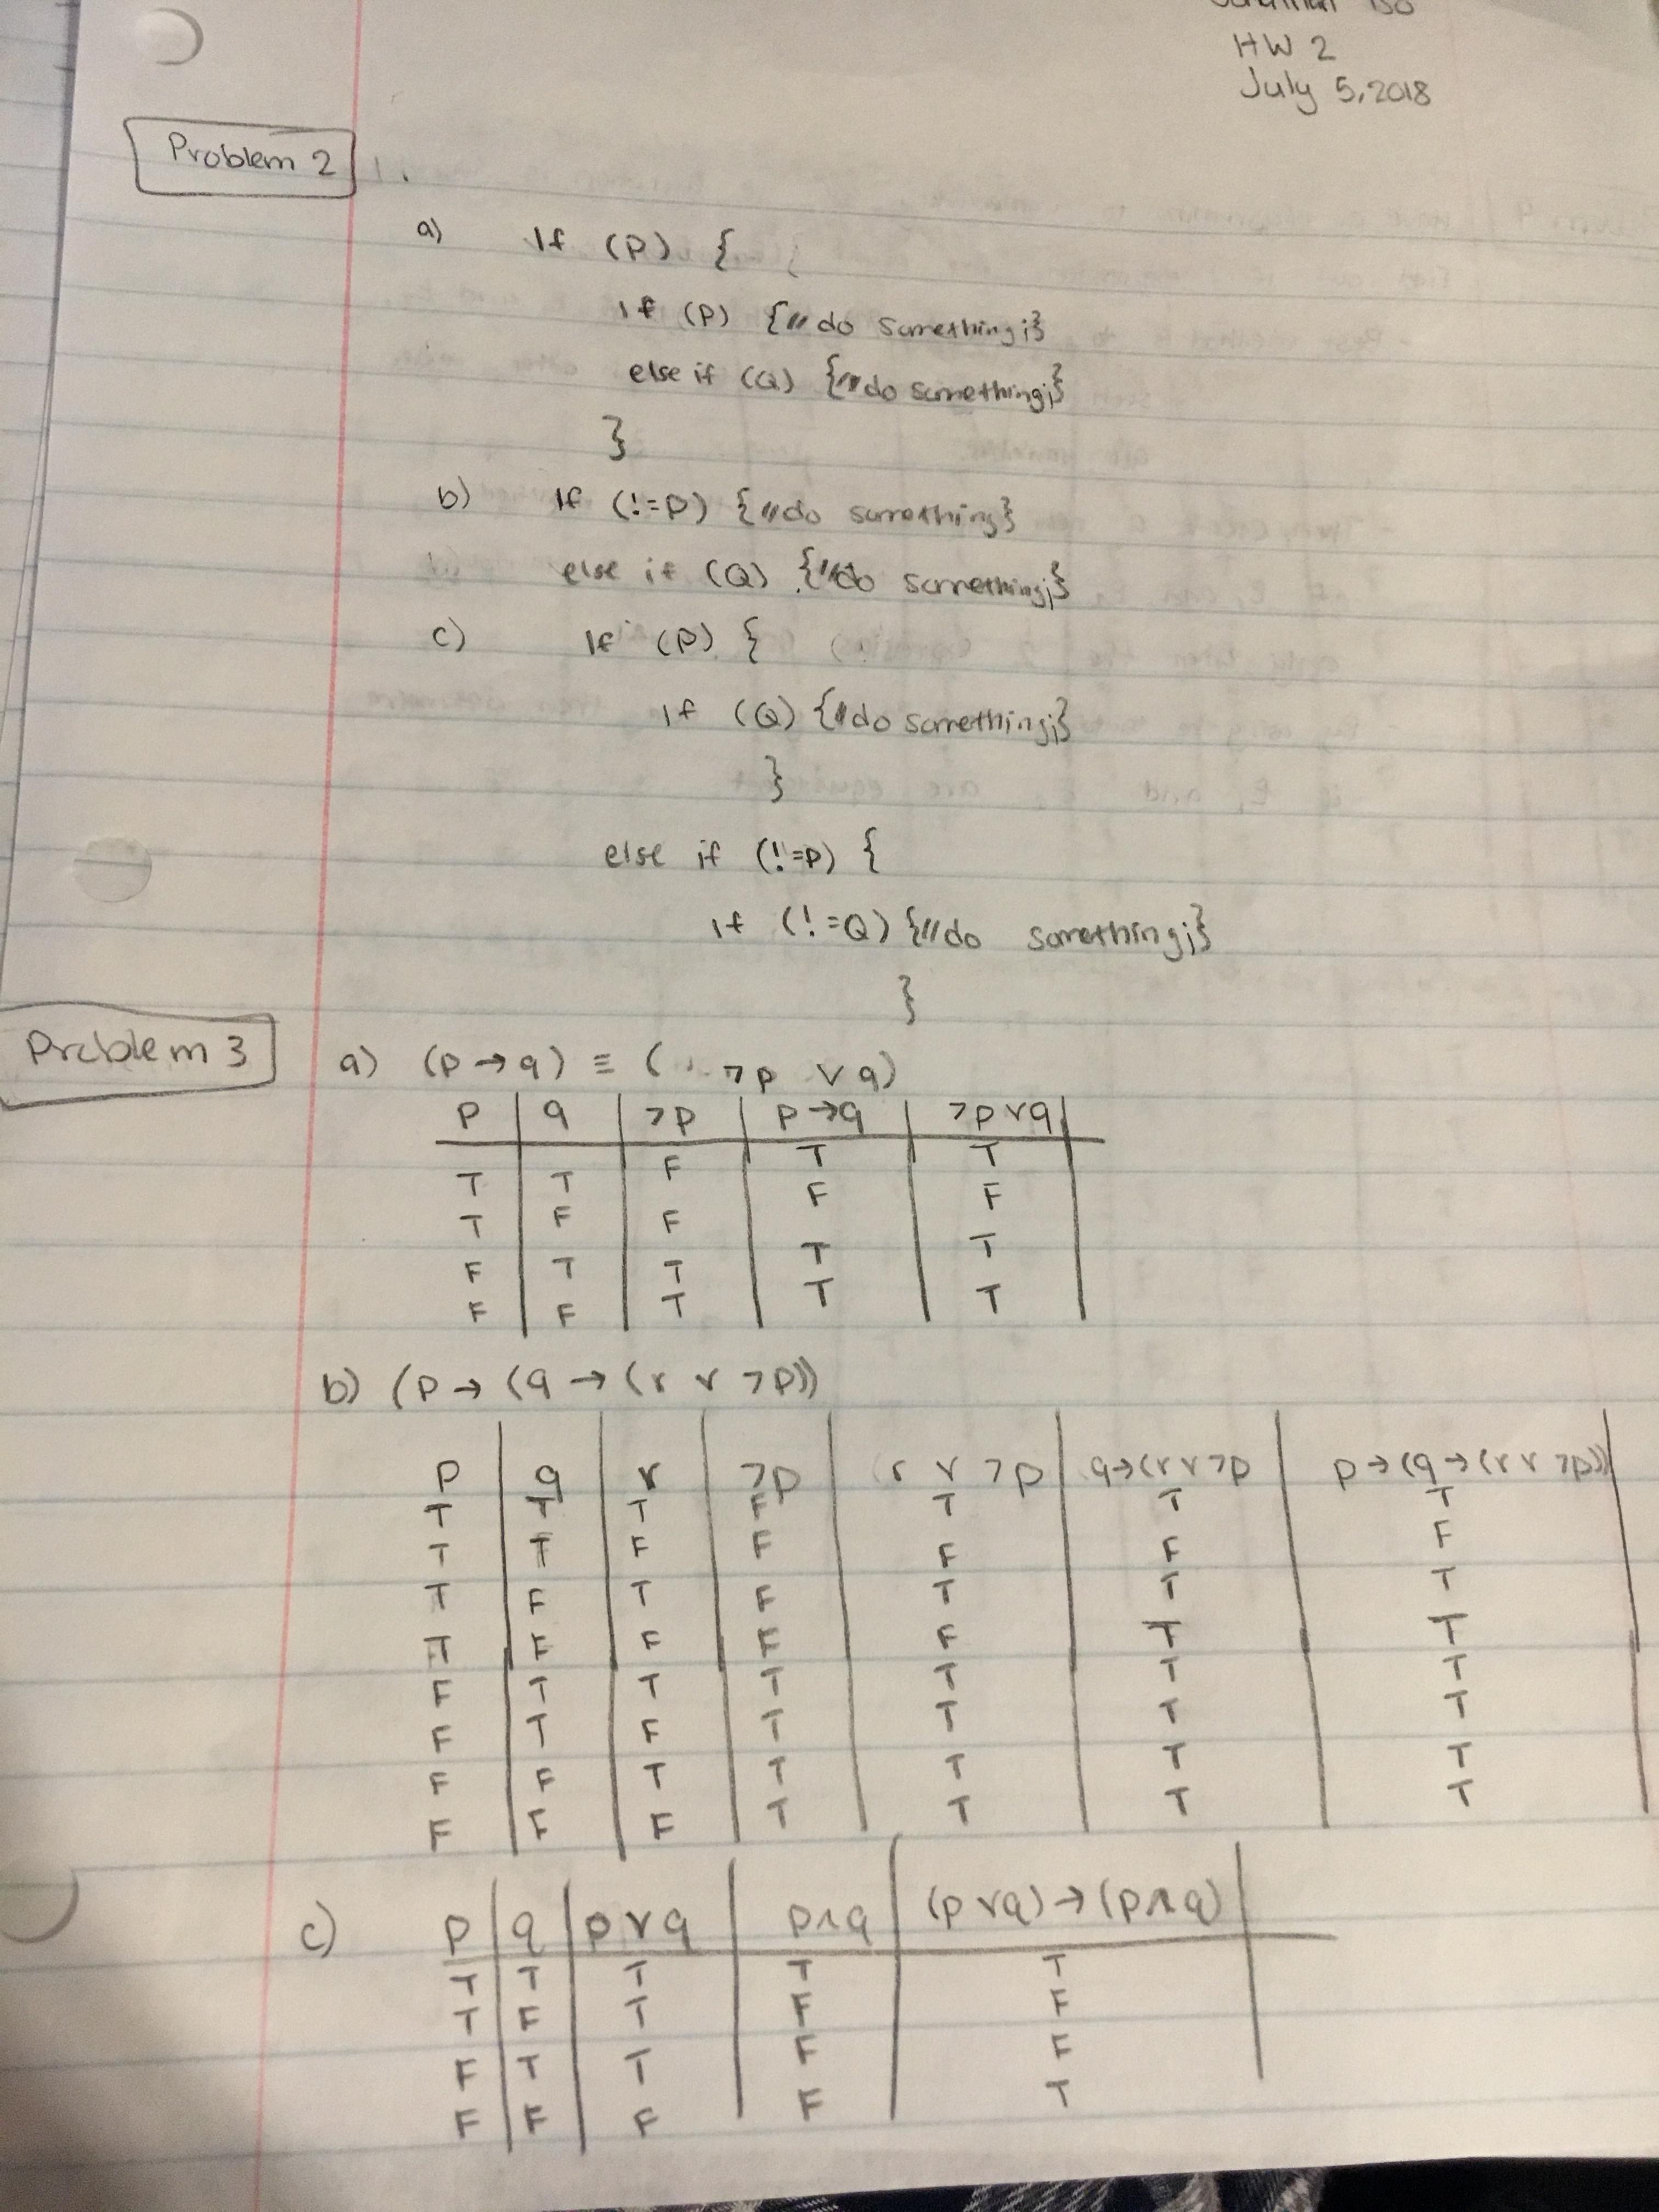 HW 2
July 5, 2018
Problem 2
1.
a) If (P) {
if (P) {//do something;}
else if (Q) {//do something;}
}
b) If (!=P) {//do something}
else if (Q) {//do something;}
c) If (P) {
if (Q) {//do something;}
}
else if (!=P) {
if (!=Q) {//do something;}
}
Problem 3
a) (p → q) ≡ ( ¬p ∨ q)
p | q | ¬p | p→q | ¬p∨q |
T | T | F | T | T
T | F | F | F | F
F | T | T | T | T
F | F | T | T | T
b) (p → (q → (r ∨ ¬p))
p | q | r | ¬p | r ∨ ¬p | q→(r∨¬p | p→(q→(r∨¬p)) |
T | T | T | F | T | T | T
T | T | F | F | F | F | F
T | F | T | F | T | T | T
T | F | F | F | F | T | T
F | T | T | T | T | T | T
F | T | F | T | T | T | T
F | F | T | T | T | T | T
F | F | F | T | T | T | T
c) p | q | p∨q | p∧q | (p∨q)→(p∧q) |
T | T | T | T | T
T | F | T | F | F
F | T | T | F | F
F | F | F | F | T